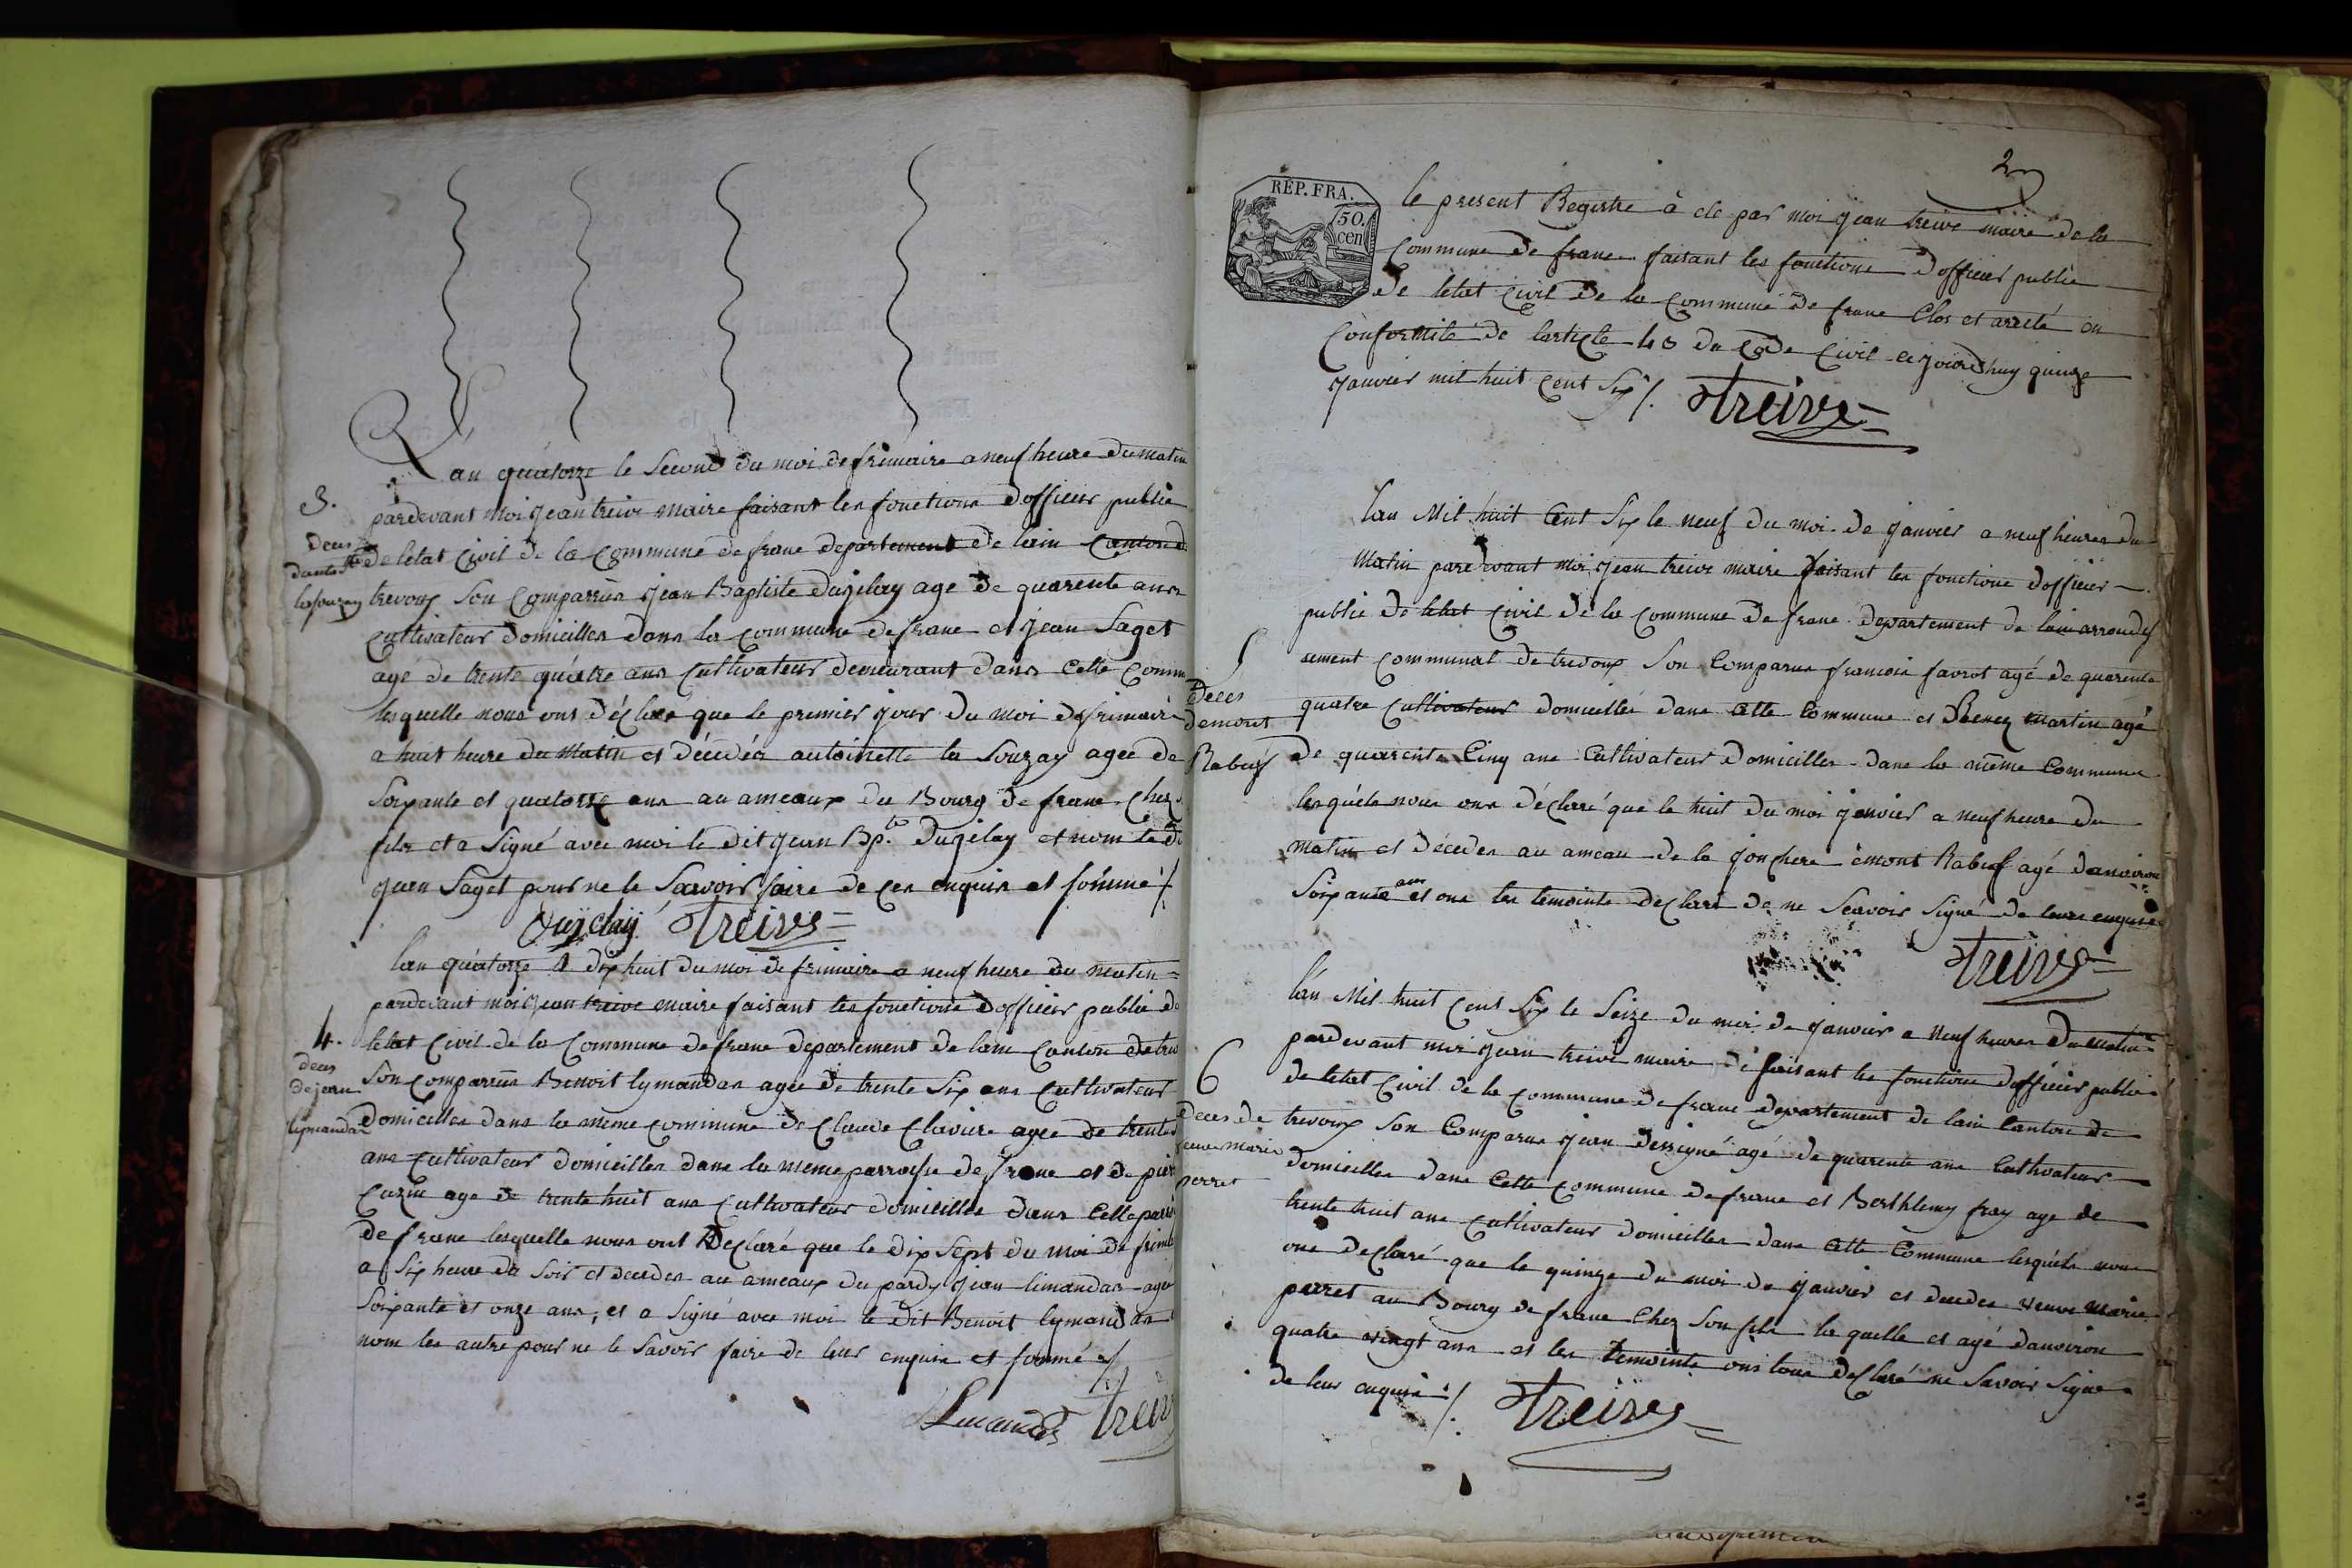 3.
deces
dantte
lasouzay
Lan quatorze le Second du moi de frimaire a neuf heure du matin
pardevant moi jean treive maire faisant les fonctions dofficier public
de letat Civil de la Commune de frane departement de lain Canton de
trevoux Son Comparrus jean Baptiste Dujelay age de quarente ans
Cultivateur domicilles dans la Commune de frane et jean Saget
agé de trente quatre ans Cultivateur demeurant dans Cette Comm
lesquelle nous ont déClaré que le premier jour du moi de frimaire
a huit heure du Matin et décédée antoinette la Souzay agee de
Soixante et quatorze ans au ameaux du Bourg de frane Chez
fils et a Signé avec moi le dit jean Bp.te Dujelay et nom le d
jean Saget pour ne le Sçavoir faire de ces enquis et sommé ./.
Dujclaÿ Treive
4.
deces
de jean
limandas
lan quatorze le dix huit du moi de frimaire a neuf heure du matin
pardevant moi jean treive maire faisant les fonctions dofficier public de
letat Civil de la Commune de frane departement de lain Canton de trev
Son Comparrus Benoit lymandas agee de trente Six ans Cultivateur
domicilles dans la même commune de Claude Claviere agee de trente
ans Cultivateur domicilles dans la meme parroisse de frane et de pier
age de trente huit ans Cultivateur domicilles dans Cette parr
de frane lesquelle nous ont DeClaré que le dix Sept du moi de frim
a Six heure du Soir et decedes au ameaux du pardy jean limandas age
Soixante et onze ans, et a Signé avec moi le dit Benoit lymandas
nom les autre pour ne le Savoir faire de leur enquis et sommé ./.
Treiv
2
RÉP. FRA.
50.
cen
le present Registre à ete par moi jean treive maire de la
Commune de frane faisant les fonctions dofficier public
de letat Civil de la Commune de frane Clos et arreté en
Conformité de larticle 43 du Code Civil ce jourdhuy quinze
janvier mil huit Cent Six ./. Treive
5
Deces
demont
Rabuf
lan Mil huit Cent Six le neuf du moi de janvier a neuf heures du
Matin pardevant moi jean treive maire faisant les fonctions dofficier
public de letat Civil de la Commune de frane departement de lain arrondis
sement Communal de trevoux Son Comparus francois favrot agé de quarente
quatre Cultivateur domicilles dans Cette Commune et Benoy Martin agé
de quarente Cinq ans Cultivateur domicilles dans la même Commune
lesquels nous ons déClaré que le huit du moi janvier a neuf heure du
matin et décedes au ameau de la jonchere émont Rabuf agé danviron
Soixante ans et ons les temointe deClaré de ne Scavoir Signé de leurs enquise
Treive
6
Deces de
veuve Marie
perret
lan Mil huit Cent Six le Seize du moi de janvier a Neuf heures du matin
pardevant moi jean treive maire de faisant les fonctions dofficier public
de letat Civil de la Commune de frane departement de lain Canton de
trevoux Son Comparus jean dessigné agé de quarente ans Cultivateur
domicilles dans Cette Commune de frane et Berthlemy fray age de
trente huit ans Cultivateur domicilles dans Cette Commune lesquels nous
ons deClaré que le quinze du moi de janvier et decedes veuve Marie
perret au Bourg de frane Chez Son fils la quelle et agé danviron
quatre vingt ans et les temointe ons tous deClaré ne Savoir Signe
de leur enquise ./. Treive